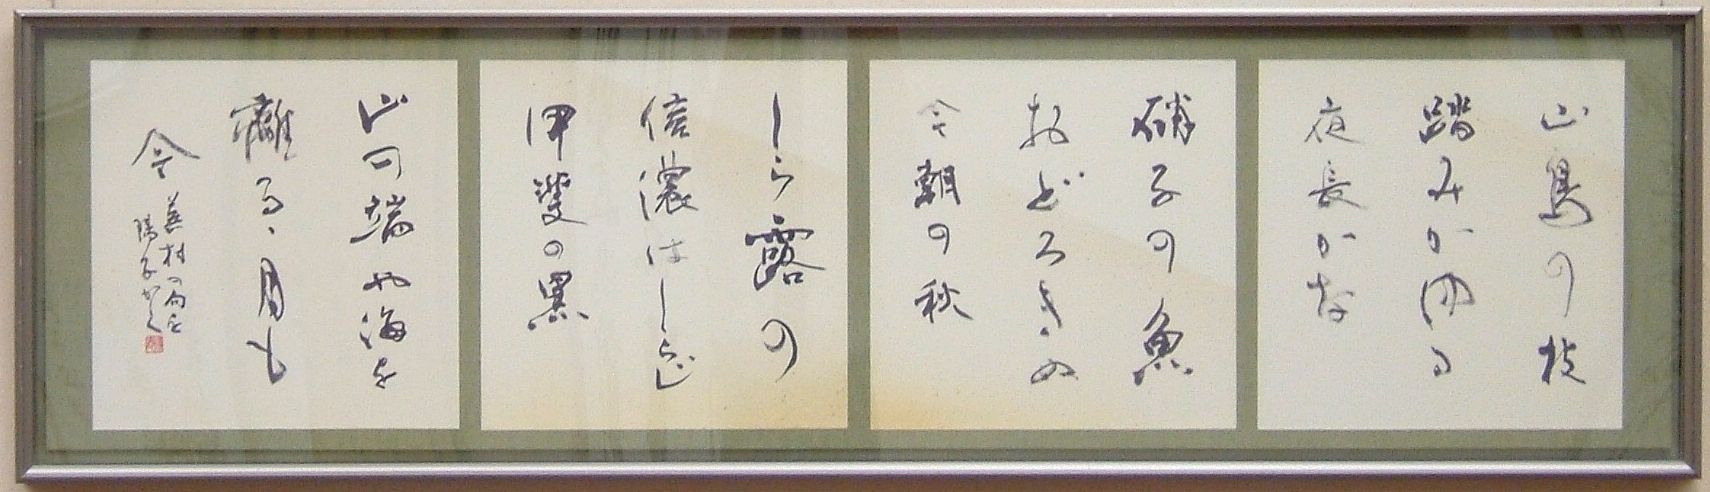 山鳥の枝
踏みかゆる
夜長かな
硝子の魚
おどろきぬ
今朝の秋
しら露の
信濃はしらじ
甲斐の黒
山の端や海を
離るゝ月も
今
蕪村の句を
陽子かく